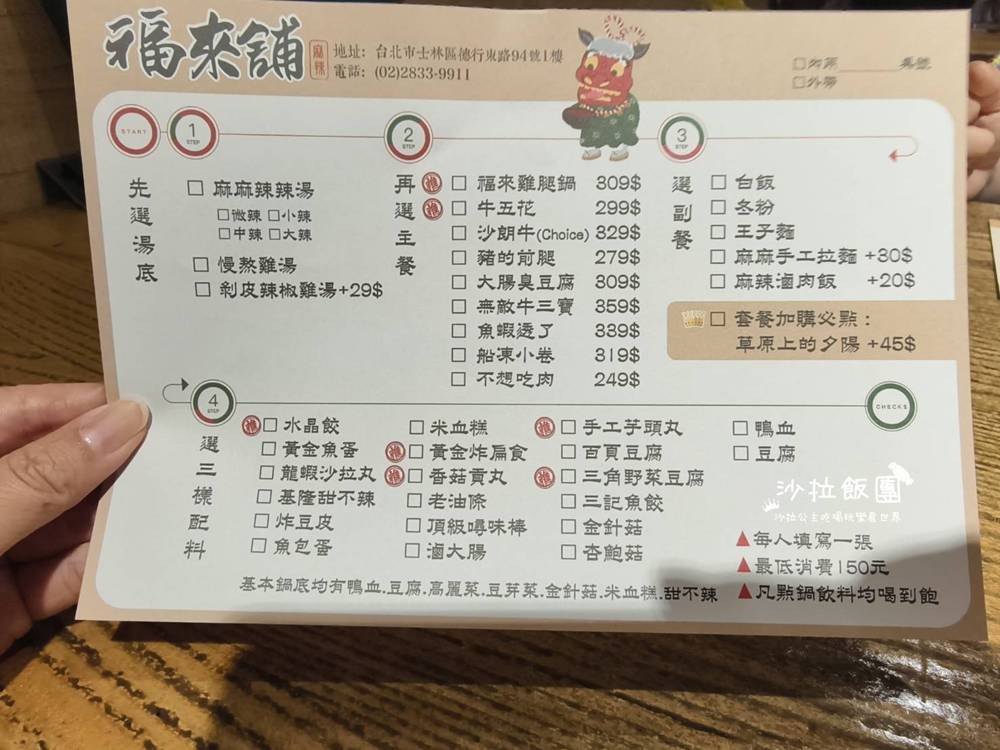 福來舖 麻辣
地址: 台北市士林區德行東路94號1樓
電話: (02)2833-9911
□內用 桌號
□外帶
START
1 STEP
先選湯底
□ 麻麻辣辣湯
□微辣 □小辣
□中辣 □大辣
□ 慢熬雞湯
□ 剝皮辣椒雞湯+29$
2 STEP
再選主餐
□ 福來雞腿鍋 309$
□ 牛五花 299$
□ 沙朗牛(Choice) 329$
□ 豬的前腿 279$
□ 大腸臭豆腐 309$
□ 無敵牛三寶 359$
□ 魚蝦透了 339$
□ 船凍小卷 319$
□ 不想吃肉 249$
3 STEP
選副餐
□ 白飯
□ 冬粉
□ 王子麵
□ 麻麻手工拉麵 +30$
□ 麻辣滷肉飯 +20$
□ 套餐加購必點:
草原上的夕陽 +45$
4 STEP
CHECKS
選三樣配料
□ 水晶餃
□ 黃金魚蛋
□ 龍蝦沙拉丸
□ 基隆甜不辣
□ 炸豆皮
□ 魚包蛋
□ 米血糕
□ 黃金炸扁食
□ 香菇貢丸
□ 老油條
□ 頂級噚味棒
□ 滷大腸
□ 手工芋頭丸
□ 百頁豆腐
□ 三角野菜豆腐
□ 三記魚餃
□ 金針菇
□ 杏鮑菇
□ 鴨血
□ 豆腐
沙拉飯團
沙拉公主吃喝玩樂看世界
▲每人填寫一張
▲最低消費150元
▲凡點鍋飲料均喝到飽
基本鍋底均有鴨血.豆腐.高麗菜.豆芽菜.金針菇.米血糕.甜不辣